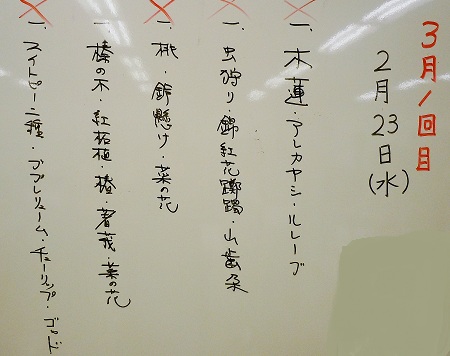 3月1回目
2月23日(水)
一、木蓮・アレカヤシ・ルレーブ
一、虫狩り・錦紅花躑躅・山歯朶
一、桃・鈴懸け・菜の花
一、榛の木・紅柘植・椿・著莪・菜の花
一、スイトピー二種・ブプレリューム・チューリップ・ゴッド